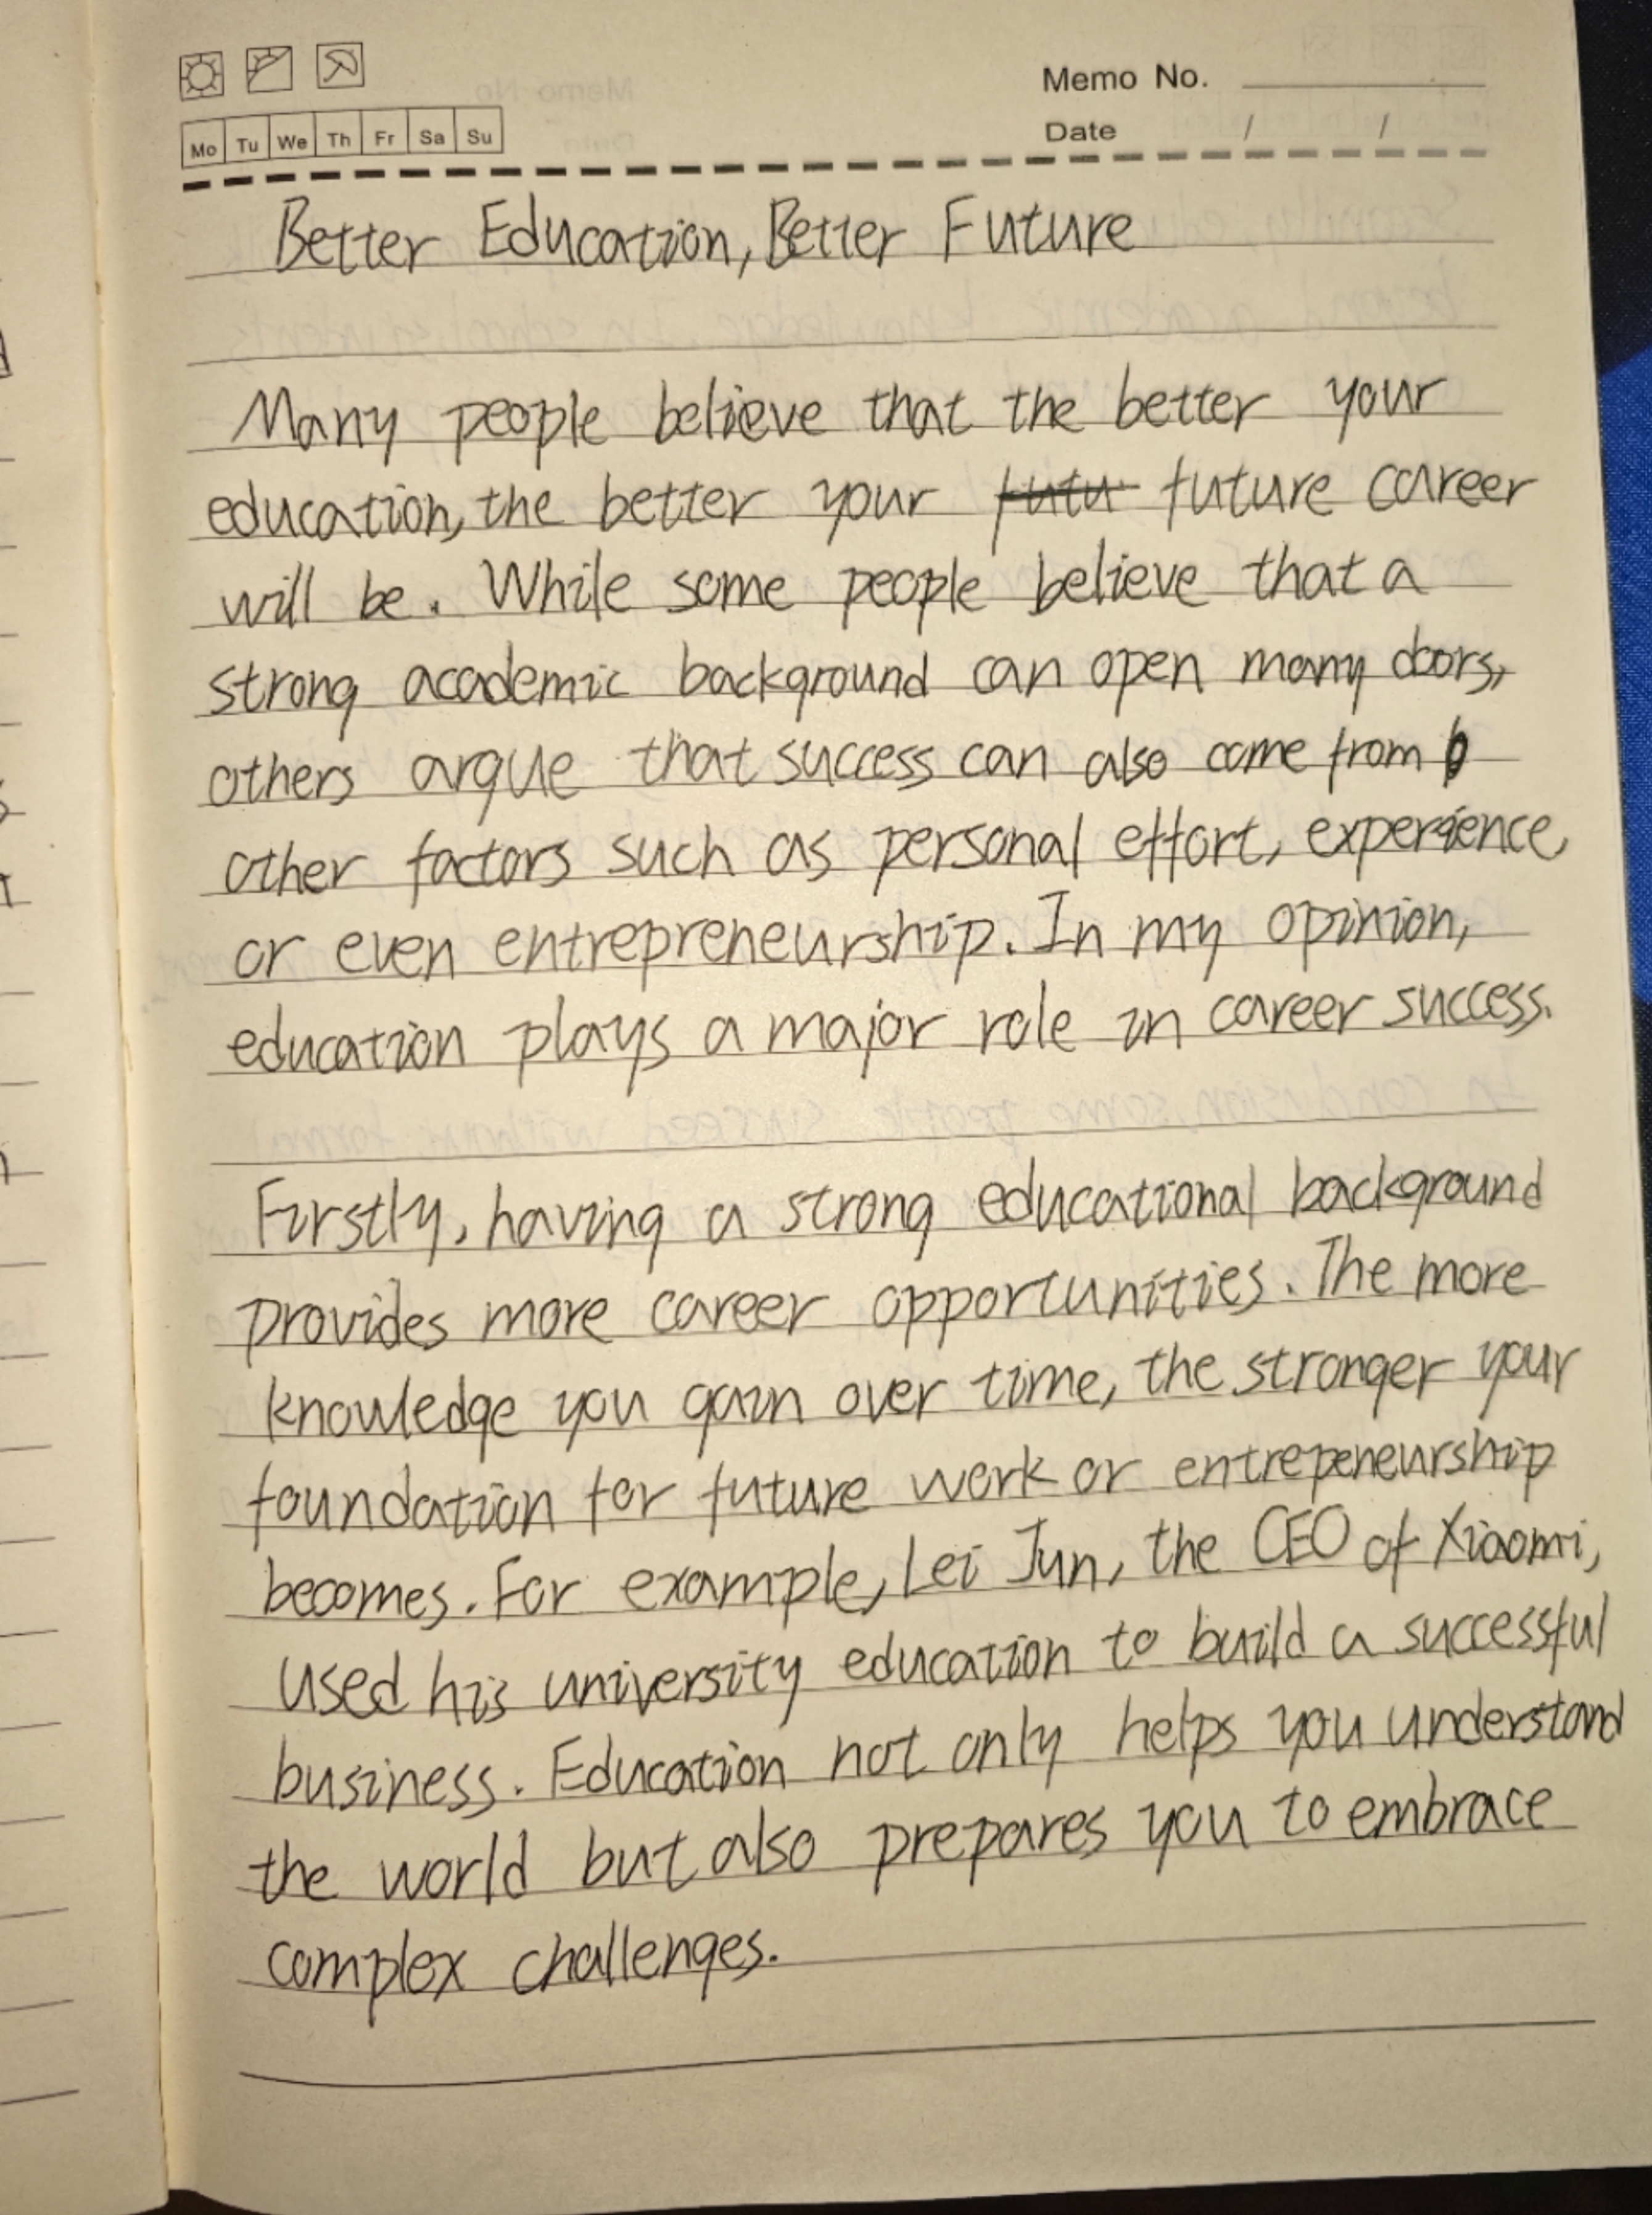 Memo No.
Mo Tu We Th Fr Sa Su
Date / /
Better Education, Better Future
Many people believe that the better your
education, the better your futu future career
will be. While some people believe that a
strong academic background can open many doors,
others argue that success can also come from
other factors such as personal effort, experience,
or even entrepreneurship. In my opinion,
education plays a major role in career success.
Firstly, having a strong educational background
provides more career opportunities. The more
knowledge you gain over time, the stronger your
foundation for future work or entrepeneurship
becomes. For example, Lei Jun, the CEO of Xiaomi,
used his university education to build a successful
business. Education not only helps you understand
the world but also prepares you to embrace
complex challenges.